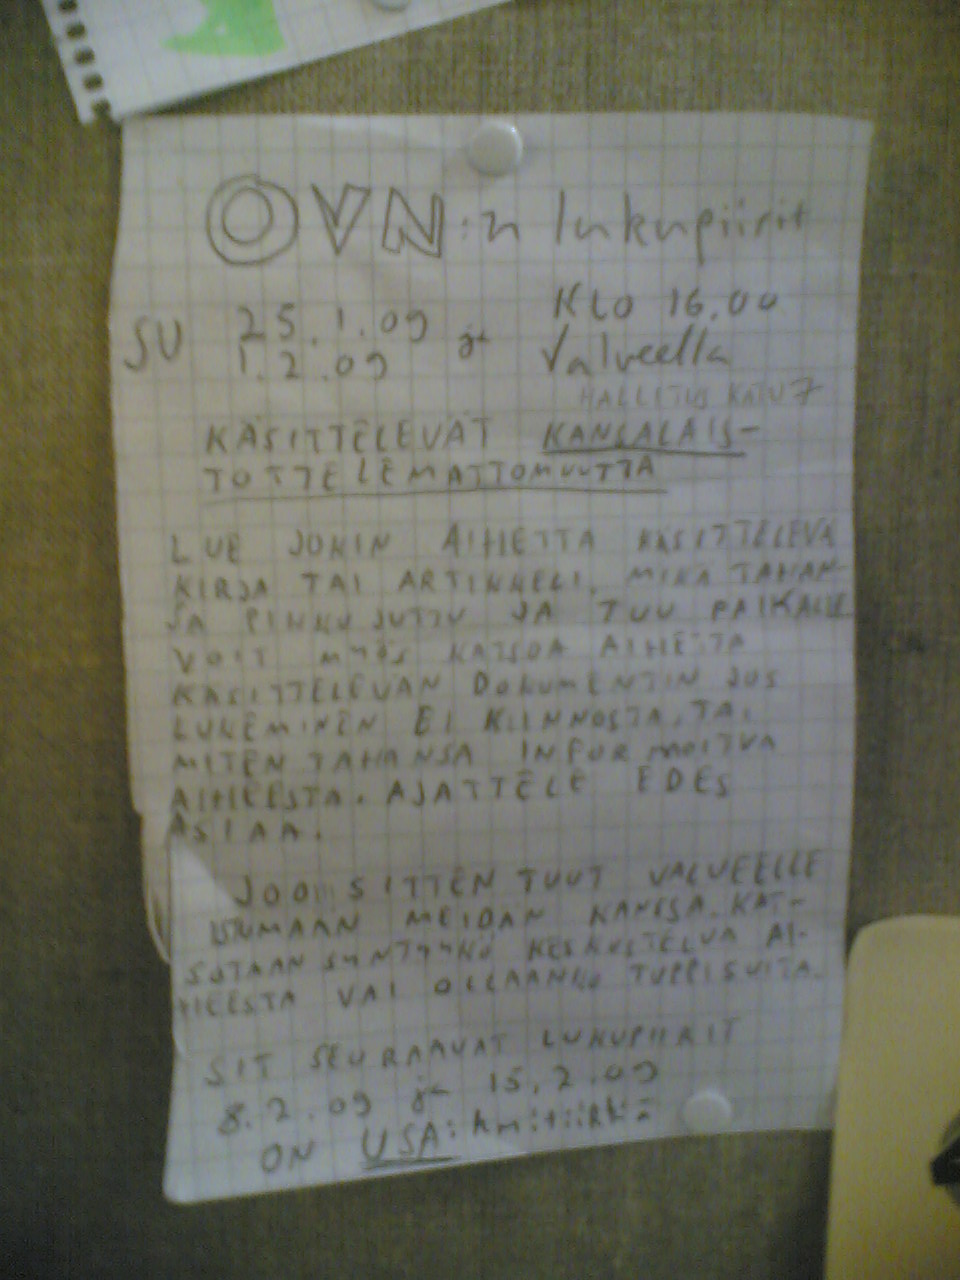 OVN:n lukupiirit
SU 25.1.09 ja KLO 16.00
1.2.09 Valveella
HALLITUSKATU 7
KÄSITTELEVÄT KANSALAIS-
TOTTELEMATTOMUUTTA
LUE JOKIN AIHETTA KÄSITTELEVÄ
KIRJA TAI ARTIKKELI, MIKÄ TAHAN-
SA PIKKUJUTTU JA TUU PAIKALLE
VOIT MYÖS KATSOA AIHETTA
KÄSITTELEVÄN DOKUMENTIN JOS
LUKEMINEN EI KIINNOSTA, TAI
MITEN TAHANSA INFORMOITUA
AIHEESTA. AJATTELE EDES
ASIAA.
JOO SITTEN TUUT VALVEELLE
ISTUMAAN MEIDÄN KANSSA. KAT-
SOTAAN SYNTYYKÖ KESKUSTELUA AI-
HEESTA VAI OLLAANKO TUPPISUITA.
SIT SEURAAVAT LUKUPIIRIT
8.2.09 ja 15.2.09
ON USA: